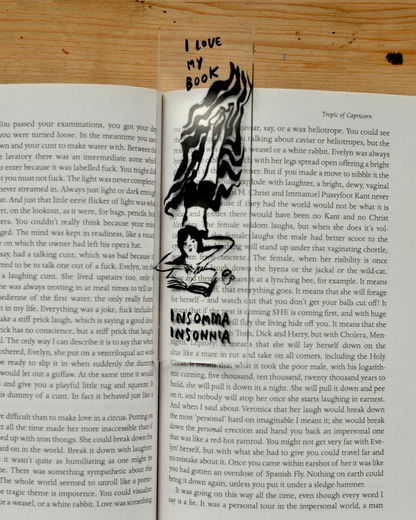 ou passed your examinations, you got your
you were turned loose. In the meantime you
own and your cunt to make water with. Between
e lavatory there was an intermediate zone
o enter because it was labelled fuck. You might
t you must not fuck. The light was never completely
ever streamed in. Always just light or dark
at. And just that little eerie flicker of light was
ert, on the lookout, as it were, for bags, pencils,
era. You couldn't really think because your
ged. The mind was kept in readiness, like a
e on which the owner had left his opera hat.
say, had a talking cunt, which was bad because
med to be to talk one out of a fuck. Evelyn, on the
a laughing cunt. She lived upstairs too, only
he was always trotting in at meal times to tell us
dienne of the first water, the only really funny
t in my life. Everything was a joke, fuck included.
ke a stiff prick laugh, which is saying a good deal.
rick has no conscience, but a stiff prick that laughs
al. The only way I can describe it is to say that when
othered, Evelyn, she put on a ventriloqual act with
e ready to slip it in when suddenly the dummy
would let out a guffaw. At the same time it would
and give you a playful little tug and squeeze. It
is dummy of a cunt. In fact it behaved just like a
difficult than to make love in a circus. Putting on
ct all the time made her more inaccessible than if
d up with iron thongs. She could break down the
rd-on in the world. Break it down with laughter.
it wasn't quite as humiliating as one might be
ne. There was something sympathetic about this
The whole world seemed to unroll like a porno
e tragic theme is impotence. You could visualize
or a weasel, or a white rabbit. Love was something
I LOVE
MY
BOOK
INSOMMA
INSONNIA
Tropic of Capricorn
caviar, say, or a wax heliotrope. You could see
talking about caviar or heliotropes, but the
weasel or a white rabbit. Evelyn was always
with her legs spread open offering a bright
But if you made a move to nibble it the
laughter, a bright, dewy, vaginal
H. Christ and Immanuel Pussyfoot Kant never
if they had the world would not be what it is
there would have been no Kant and no Christ
female seldom laughs, but when she does it's
female laughs the male had better scoot to the
will stand up under that vaginating chortle,
The female, when her risibility is once
down the hyena or the jackal or the wild-cat.
at a lynching bee, for example. It means
that everything goes. It means that she will forage
for herself – and watch out that you don't get your balls cut off! It
coming SHE is coming first, and with huge
flay the living hide off you. It means that
Tom, Dick and Harry, but with Cholera,
that she will lay herself down on the
altar like a mare in rut and take on all comers, including the Holy
means that what it took the poor male, with his logarith-
mic cunning, five thousand, ten thousand, twenty thousand years to
build, she will pull down in a night. She will pull it down and pee
on it, and nobody will stop her once she starts laughing in earnest.
And when I said about Veronica that her laugh would break down
the most 'personal' hard-on imaginable I meant it; she would break
down the personal erection and hand you back an impersonal one
that was like a red-hot ramrod. You might not get very far with Eve-
lyn herself, but with what she had to give you could travel far and
no mistake about it. Once you came within earshot of her it was like
you had gotten an overdose of Spanish Fly. Nothing on earth could
bring it down again, unless you put it under a sledge-hammer.
It was going on this way all the time, even though every word I
say is a lie. It was a personal tour in the impersonal world, a man